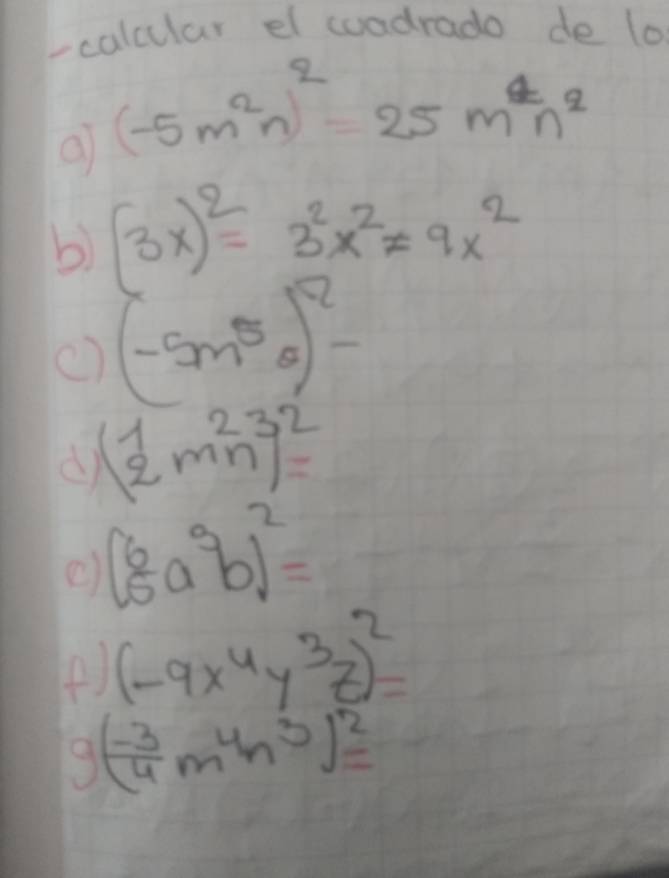 -calcular el cuadrado de lo
a) (-5m²n)² = 25 m⁴n²
b) (3x)² = 3²x² = 9x²
c) (-5m⁵ )² -
d) (1/2 m²n³)² =
e) (6/5 a⁹b)² =
f) (-9x⁴y³z)² =
g (-3/4 m⁴n³)² =